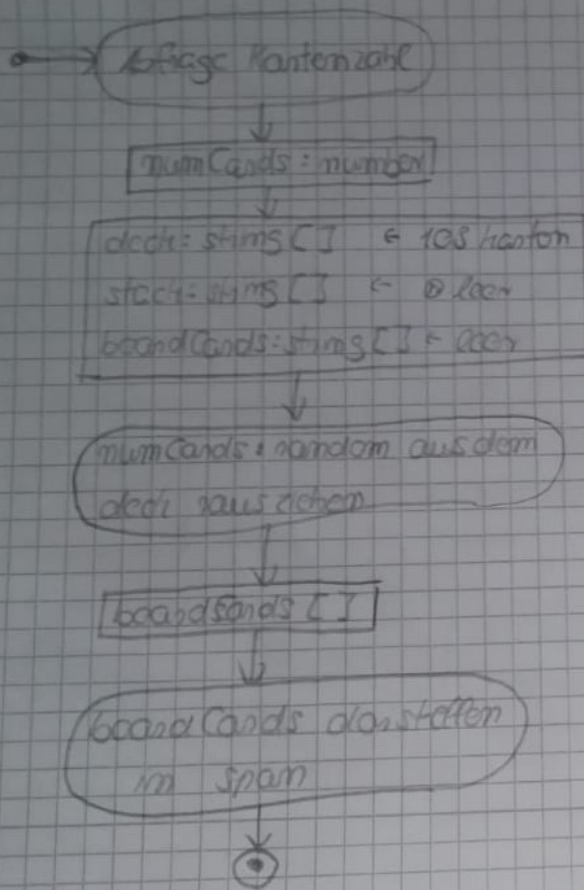 Abfrage Kartenzahl
numCards: number
deck: string [] ← 108 karten
stack: string [] ← leer
boardCards: string [] ← leer
numCards random aus dem
deck rausziehen
boardCards []
boardCards darstellen
in span